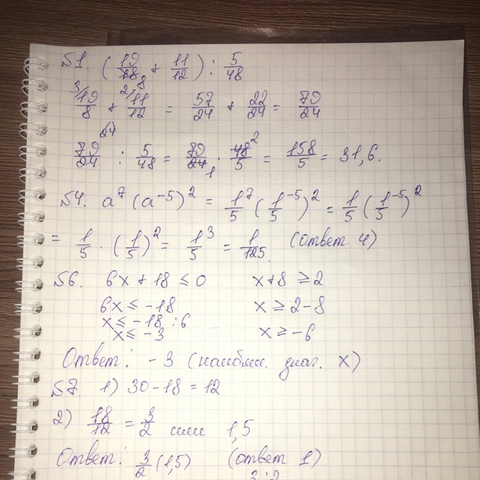 №1. (19/8 + 11/12) : 5/48
19/8 + 11/12 = 57/24 + 22/24 = 79/24
79/24 : 5/48 = 79/24 · 48/5 = 158/5 = 31,6.
№4. a⁷(a⁻⁵)² = 1/5⁷(1/5⁻⁵)² = 1/5(1/5⁻⁵)²
= 1/5 · (1/5)² = 1/5³ = 1/125. (ответ 4)
№6. 6x + 18 ≤ 0 x+8 ≥ 2
6x ≤ -18 x ≥ 2-8
x ≤ -18 : 6 x ≥ -6
x ≤ -3
Ответ: -3 (наибол. знач. x)
№7. 1) 30 - 18 = 12
2) 18/12 = 3/2 или 1,5
Ответ: 3/2 (1,5) (ответ 1)